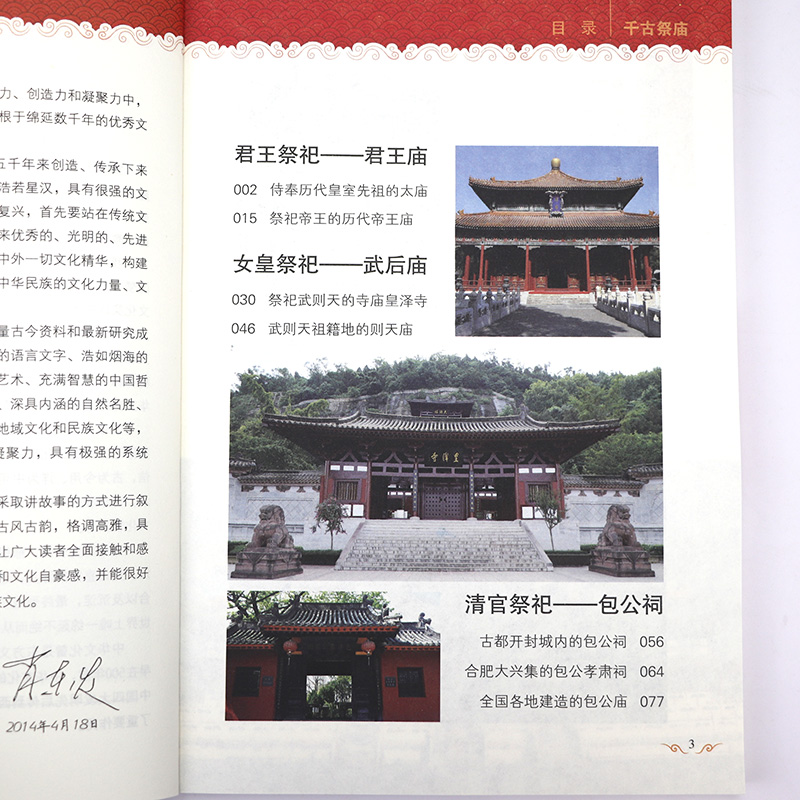 力、创造力和凝聚力中，
根于绵延数千年的优秀文
五千年来创造、传承下来
浩若星汉，具有很强的文
复兴，首先要站在传统文
来优秀的、光明的、先进
中外一切文化精华，构建
中华民族的文化力量、文
量古今资料和最新研究成
的语言文字、浩如烟海的
艺术、充满智慧的中国哲
、深具内涵的自然名胜、
地域文化和民族文化等，
凝聚力，具有极强的系统
采取讲故事的方式进行叙
古风古韵，格调高雅，具
让广大读者全面接触和感
和文化自豪感，并能很好
族文化。
肖东发
2014年4月18日
目 录 千古祭庙
君王祭祀——君王庙
002 侍奉历代皇室先祖的太庙
015 祭祀帝王的历代帝王庙
女皇祭祀——武后庙
030 祭祀武则天的寺庙皇泽寺
046 武则天祖籍地的则天庙
寺泽皇
清官祭祀——包公祠
古都开封城内的包公祠 056
合肥大兴集的包公孝肃祠 064
全国各地建造的包公庙 077
3